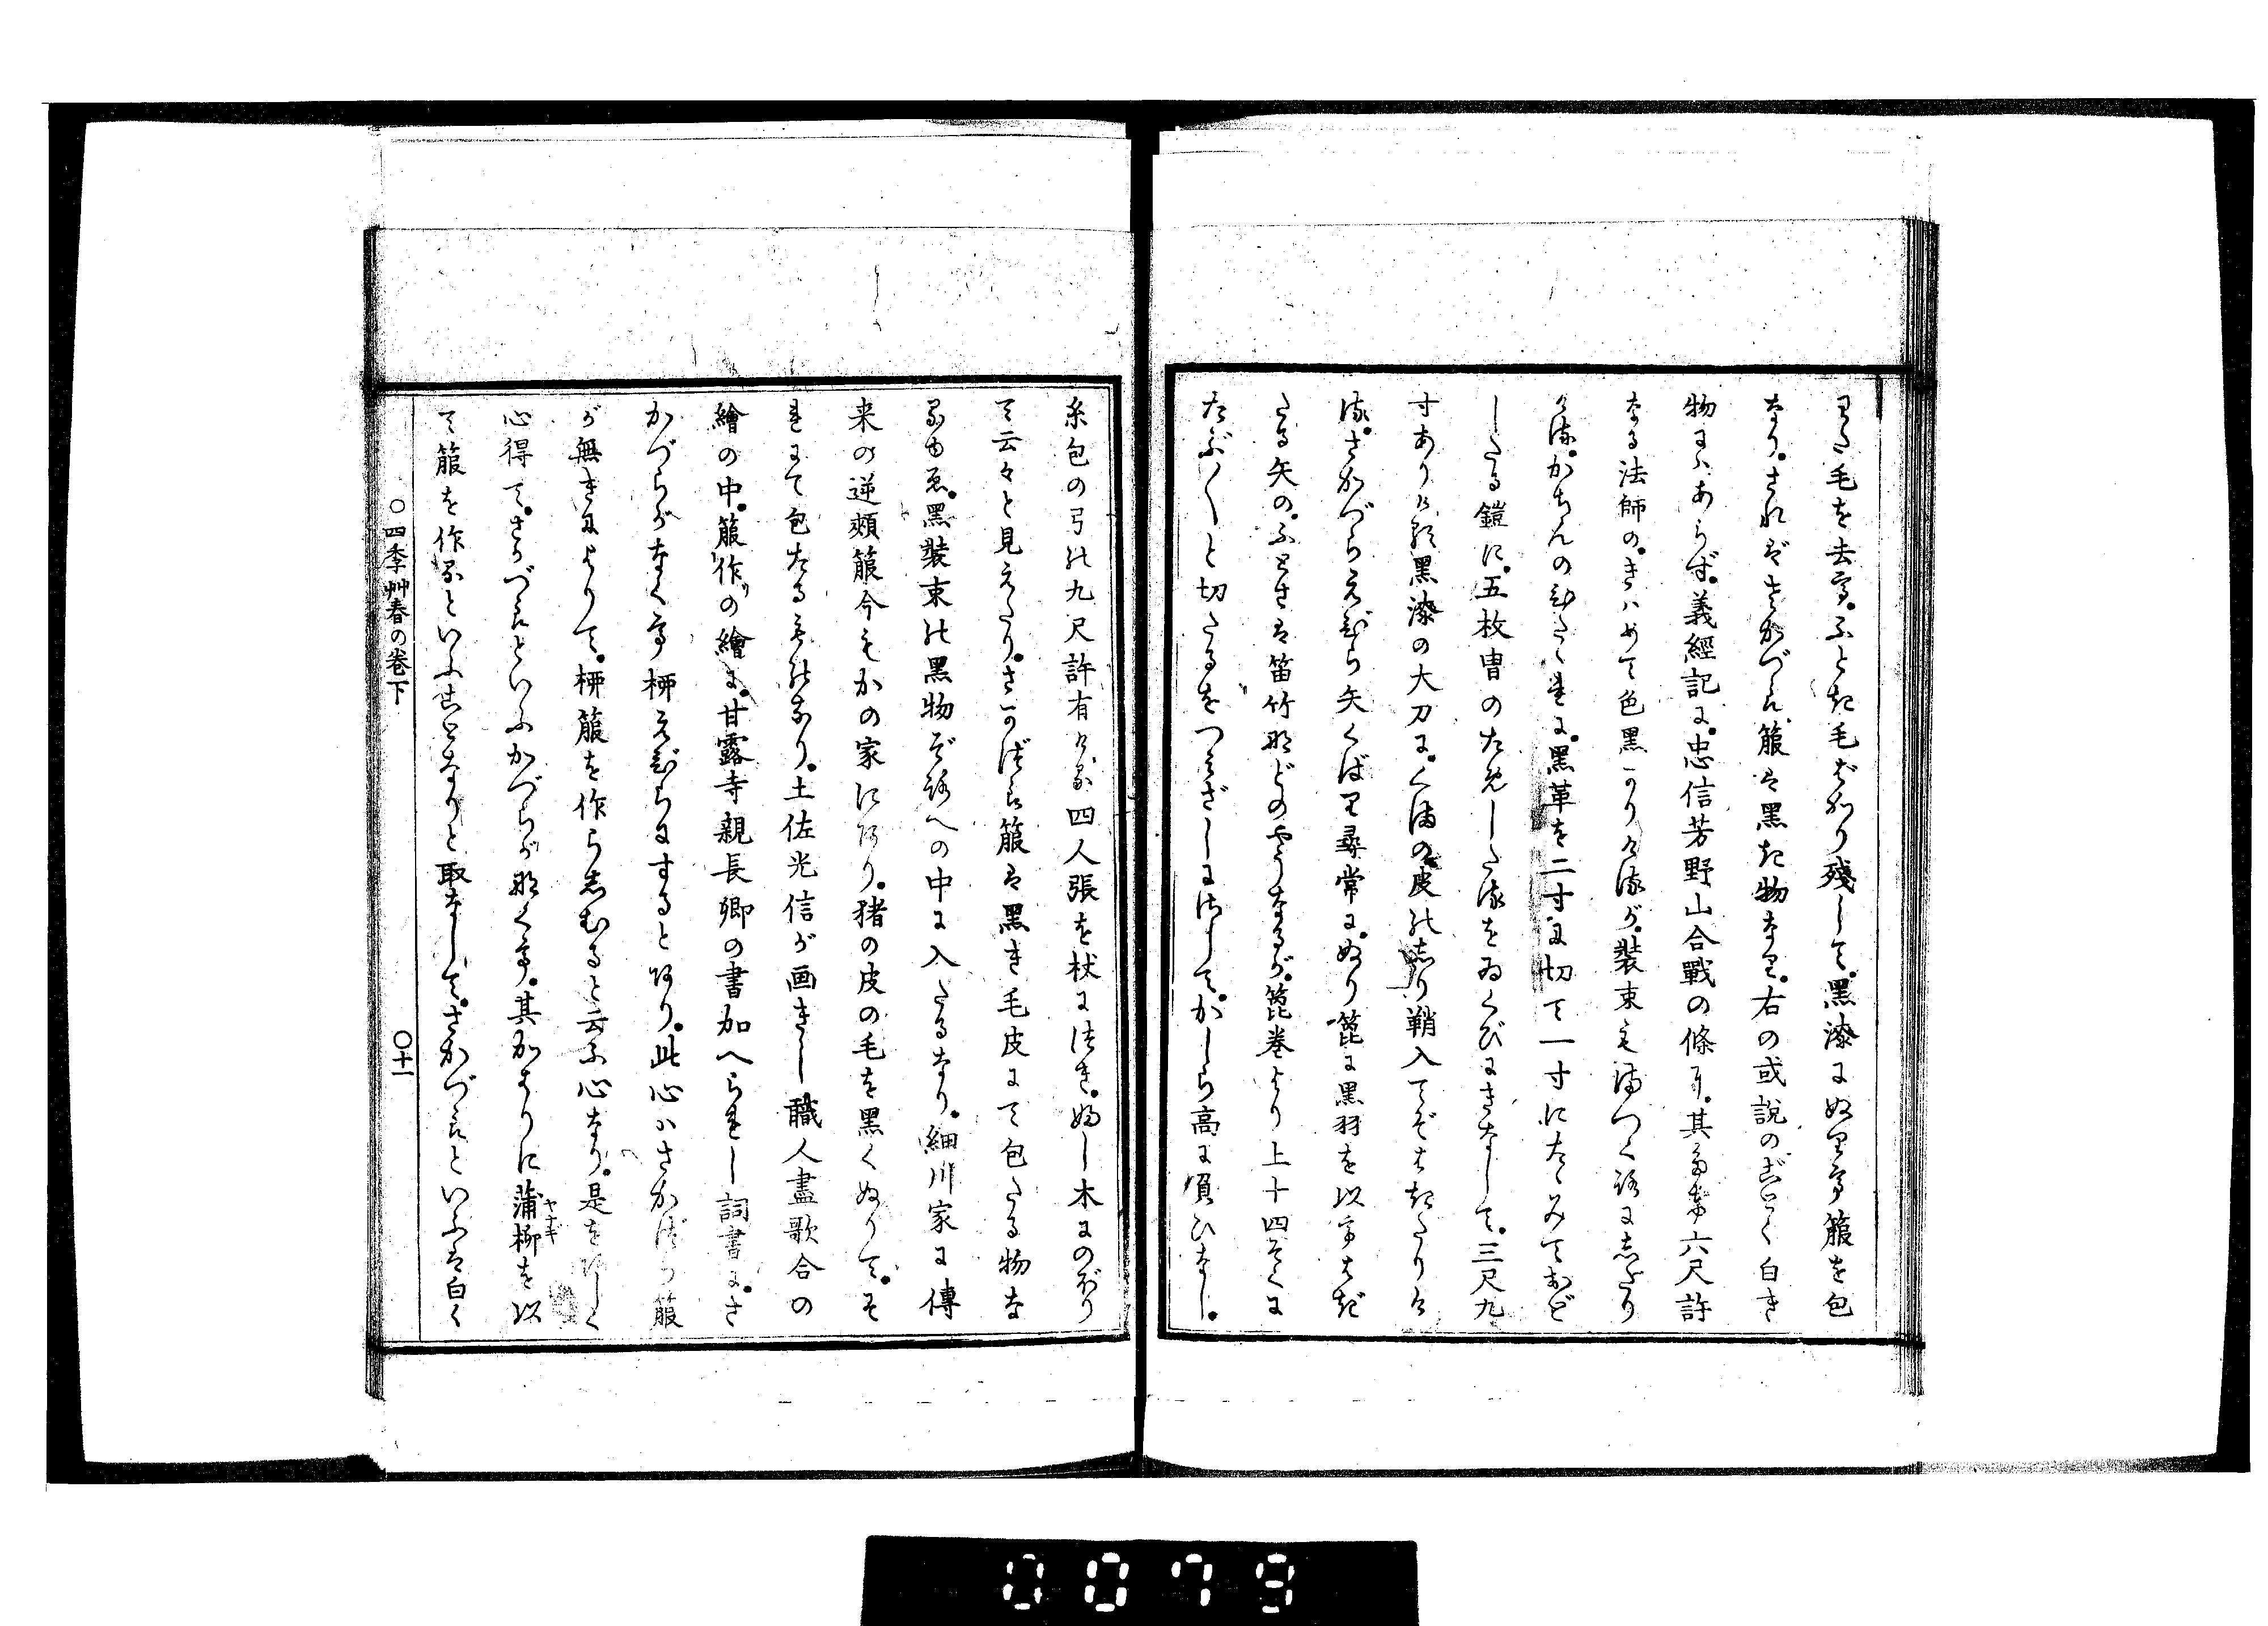 わた毛を去て。ふとき毛ばかり残して。黒漆にぬりて箙を包
なり。されどさかづら箙は黒き物なり。右の或説のごとく白き
物にハあらず。義經記に。忠信芳野山合戰の條に。其たけ六尺許
なる法師の。きハめて色黒かりけるが。装束もまつくろにしたり
ける。かちんのひたゝれに。黒革を二寸に切て一寸にたゝみておど
したる鎧に。五枚甲のためしたるをゐくびにきなして。三尺九
寸ありける黒漆の大刀に。くまの皮のしり鞘入てぞはきたりけ
る。さかづらえびら矢くばり尋常に。ぬり箆に黒羽を以てはぎ
たる矢の。ふとさは笛竹などのやうなるが。箆巻より上十四そくに
たぶ〳〵と切たるをつかみざしにさして。かしら高に負ひなし。
糸包の弓の九尺許有ける四人張を杖につき。ふし木にのぼり
て云々と見えたり。さかづら箙は黒き毛皮にて包たる物な
るゆゑ。黒装束の黒物ぞろへの中に入たるなり。細川家に傳
来の逆頬箙今もかの家にあり。猪の皮の毛を黒くぬりて。そ
れにて包たるものなり。土佐光信が画きし職人盡歌合の
繪の中。箙作りの繪に。甘露寺親長卿の書加へられし詞書に。さ
かづらがなくて柳えびらにすると有り。此心ハさかづら箙
が無きによりて。柳箙を作らしむると云ふ心なり。是をあしく
心得て。さかづらといふかづらが無くて。其かはりに蒲柳ヤナギを以
て箙を作るといふことなりと取なして。さかづらといふは白く
○四季艸春の巻下　○十一
0079